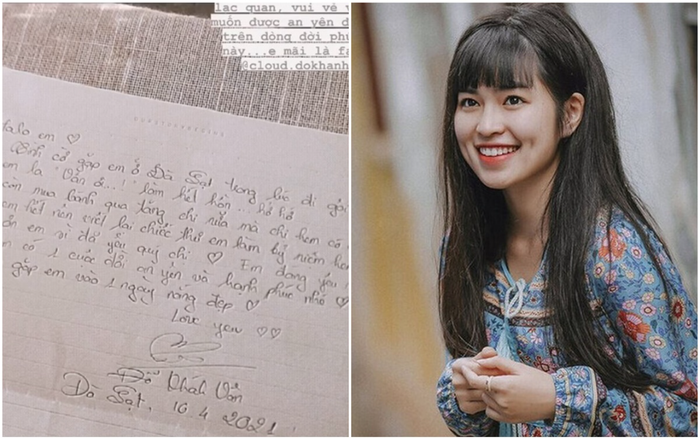 lạc quan, vui vẻ v
muốn được an yên đ
trên dòng đời ph
này...e mãi là fa
@cloud.dokhanh
em ♡
gặp em ở Đà Lạt trong lúc đi
em la "Vân ơi...!" làm hết hồn... hố hố
mua bánh qua tặng chị nữa mà chị hem có
hết nên viết lại chiếc thư em làm kỷ niệm hen
em vì đã yêu quý chị ♡ Em đang yêu
có 1 cuộc đời an yên và hạnh phúc nhé ♡
gặp em vào 1 ngày nắng đẹp ♡
Love you ♡♡
Đỗ Khánh Vân
Đà Lạt, 10.4.2021